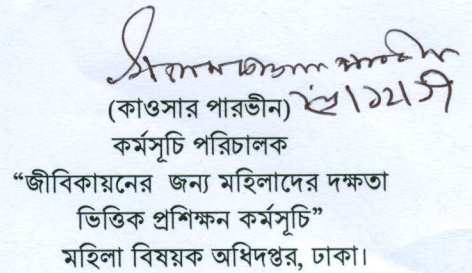 (কাওসার পারভীন)
কর্মসূচি পরিচালক
“জীবিকায়নের জন্য মহিলাদের দক্ষতা
ভিত্তিক প্রশিক্ষন কর্মসূচি”
মহিলা বিষয়ক অধিদপ্তর, ঢাকা।